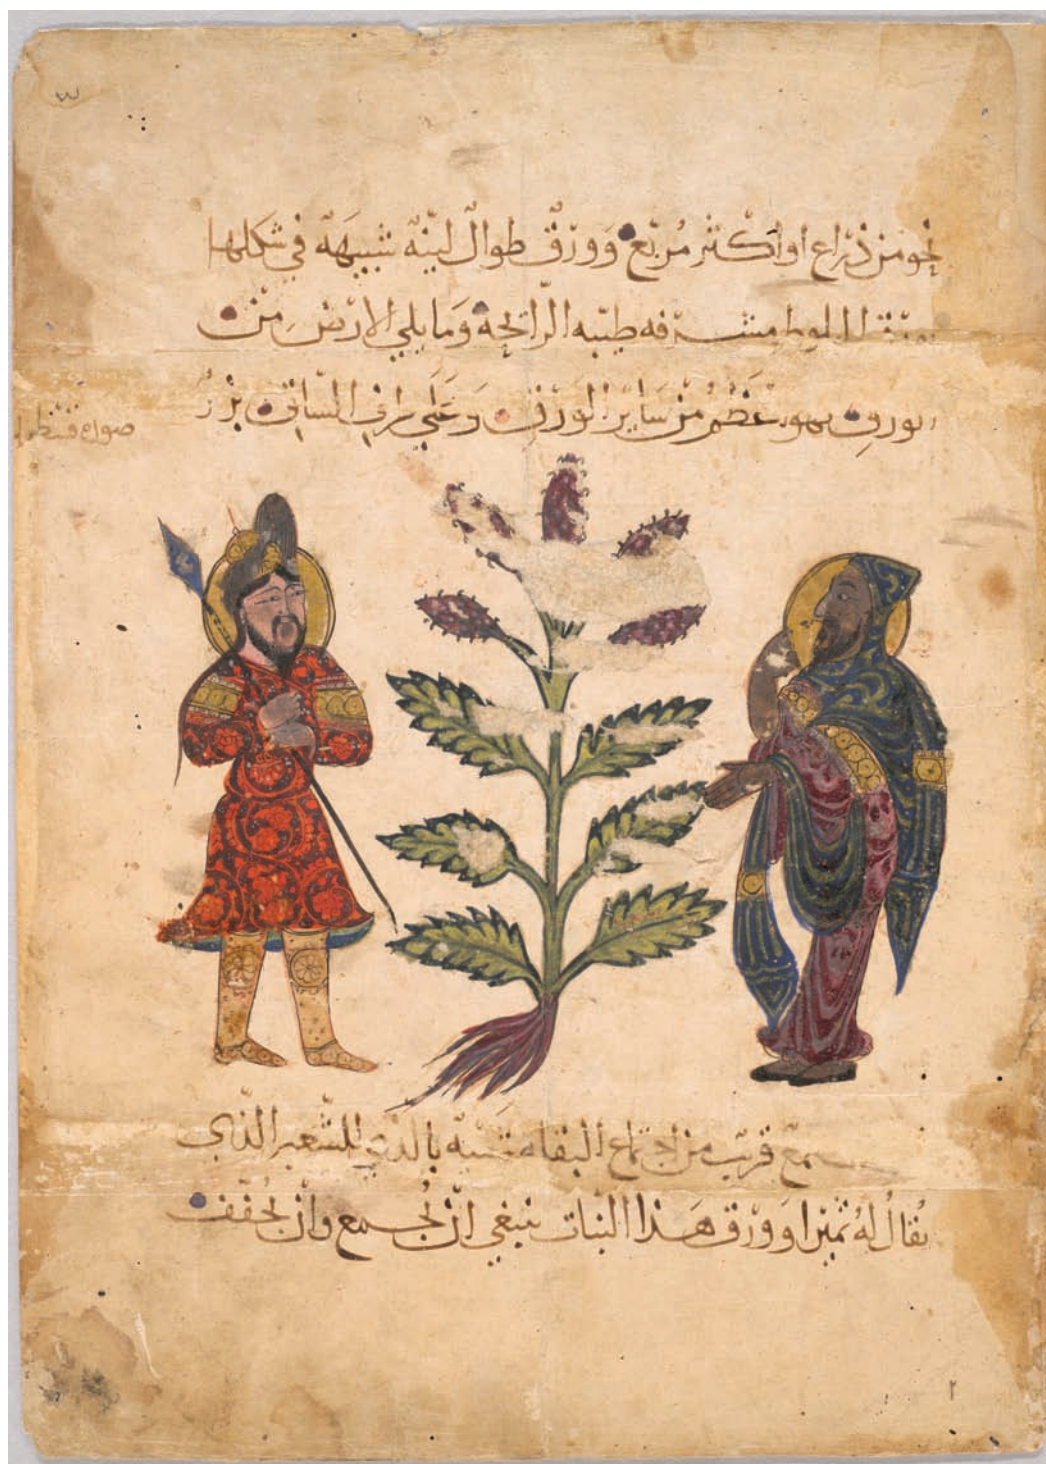 نحو من ذراع او اكثر مُربّع وورق طوال لينة شبيهه في شكلها
البلوط مشرفه طيّبه الرّائحة وَما يلي الارض من
الورق فهو اعظم من ساير الورق وَعَلي طرف الساق بزر
صوره
قريب من البقله بالذي للشعير الذي
يُقالُ لهُ او ورق هَذا النّبات ينبغي انّ يُجمع وانّ يُجفّف
٢